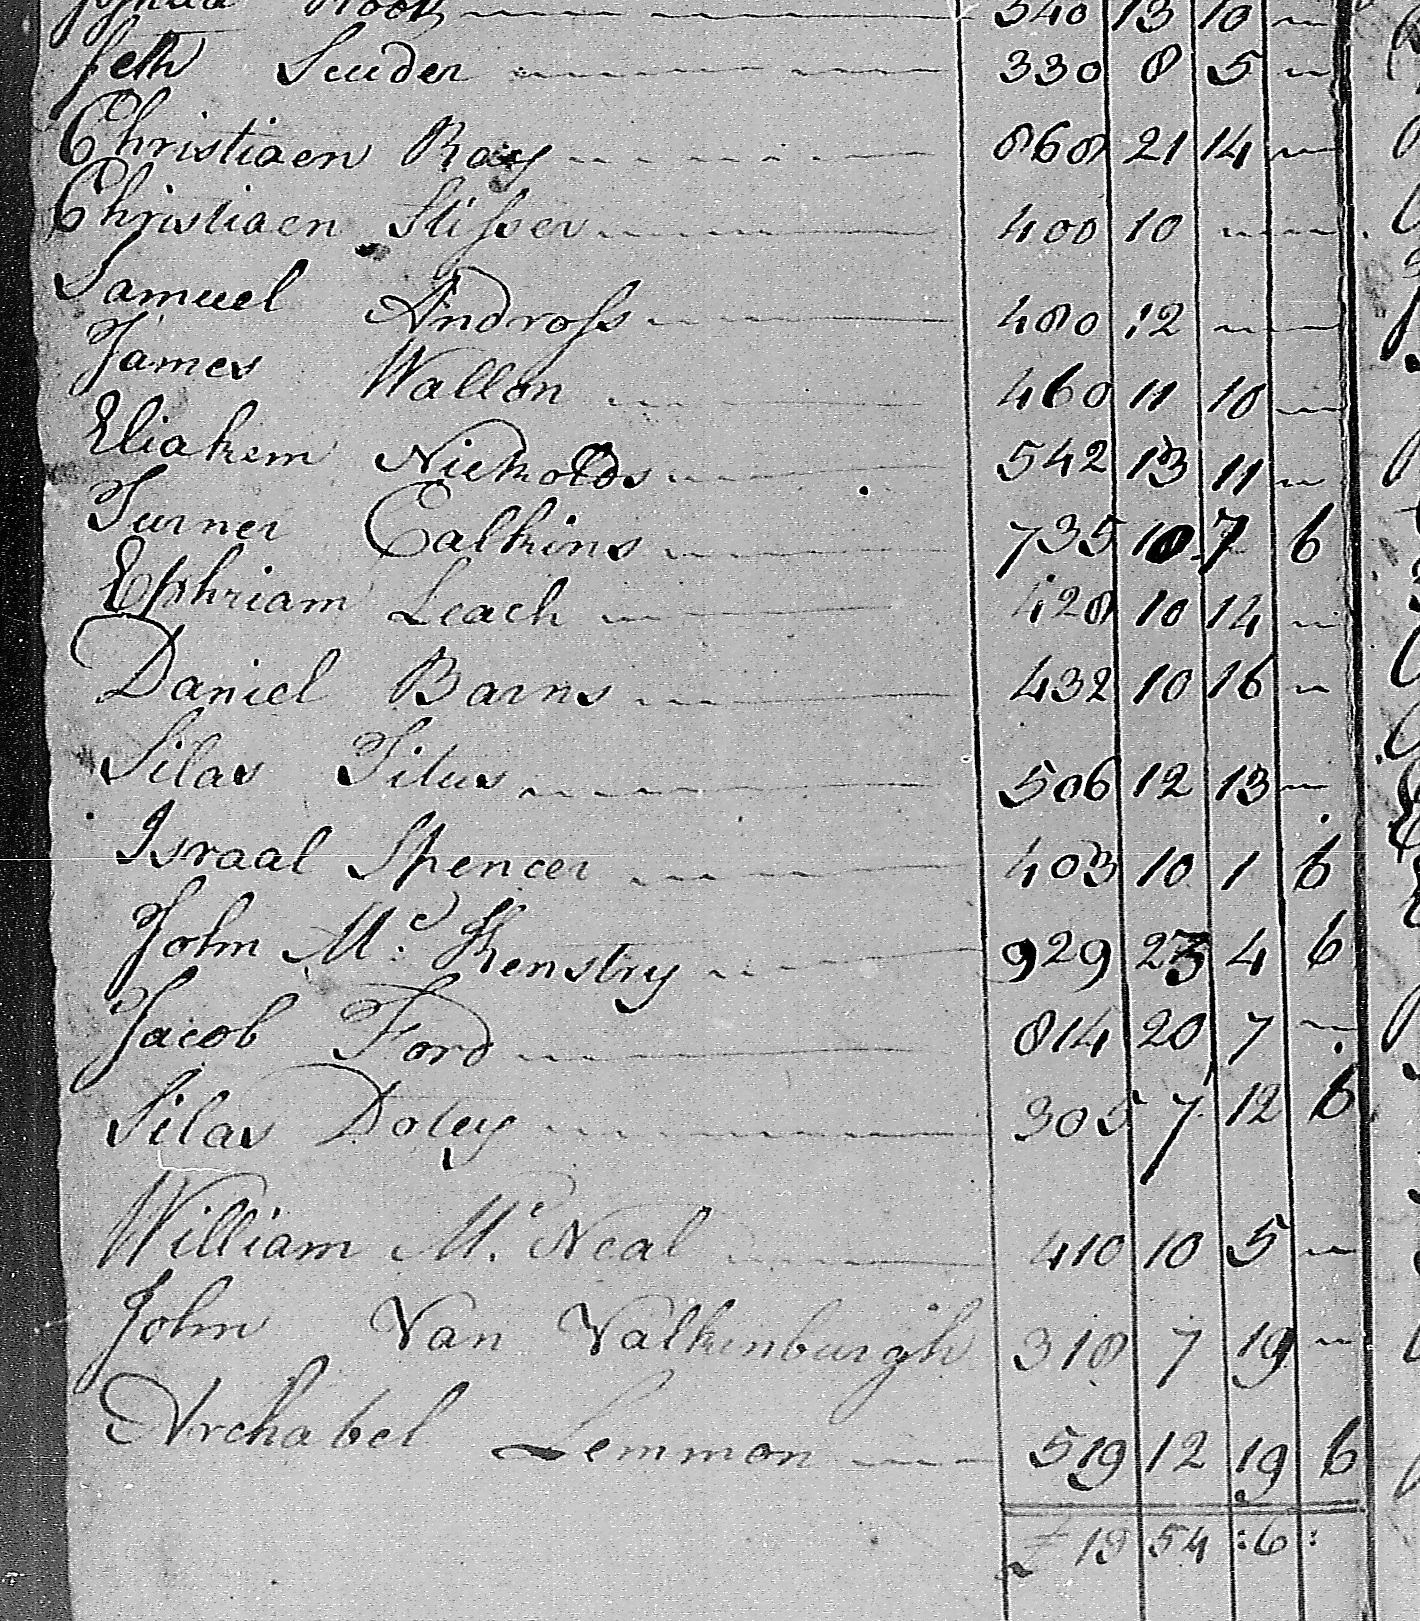 Joshua Root 540 13 10
Seth Scuder 330 8 5
Christiaen Ray 868 21 14
Christiaen Stisser 400 10
Samuel Andross 480 12
James Wallon 460 11 10
Eliakem Nickolds 542 13 11
Turner Calkins 735 10 7 6
Ephriam Leach 428 10 14
Daniel Barns 432 10 16
Silas Titus 506 12 13
Israal Spencer 403 10 1 6
John Mc: Kenstry 929 23 4 6
Jacob Ford 814 20 7
Silas Doley 305 7 12 6
William Mc. Neal 410 10 5
John Van Valkenburgh 318 7 19
Archabel Lemmon 519 12 19 6
£ 19 54 : 6 :